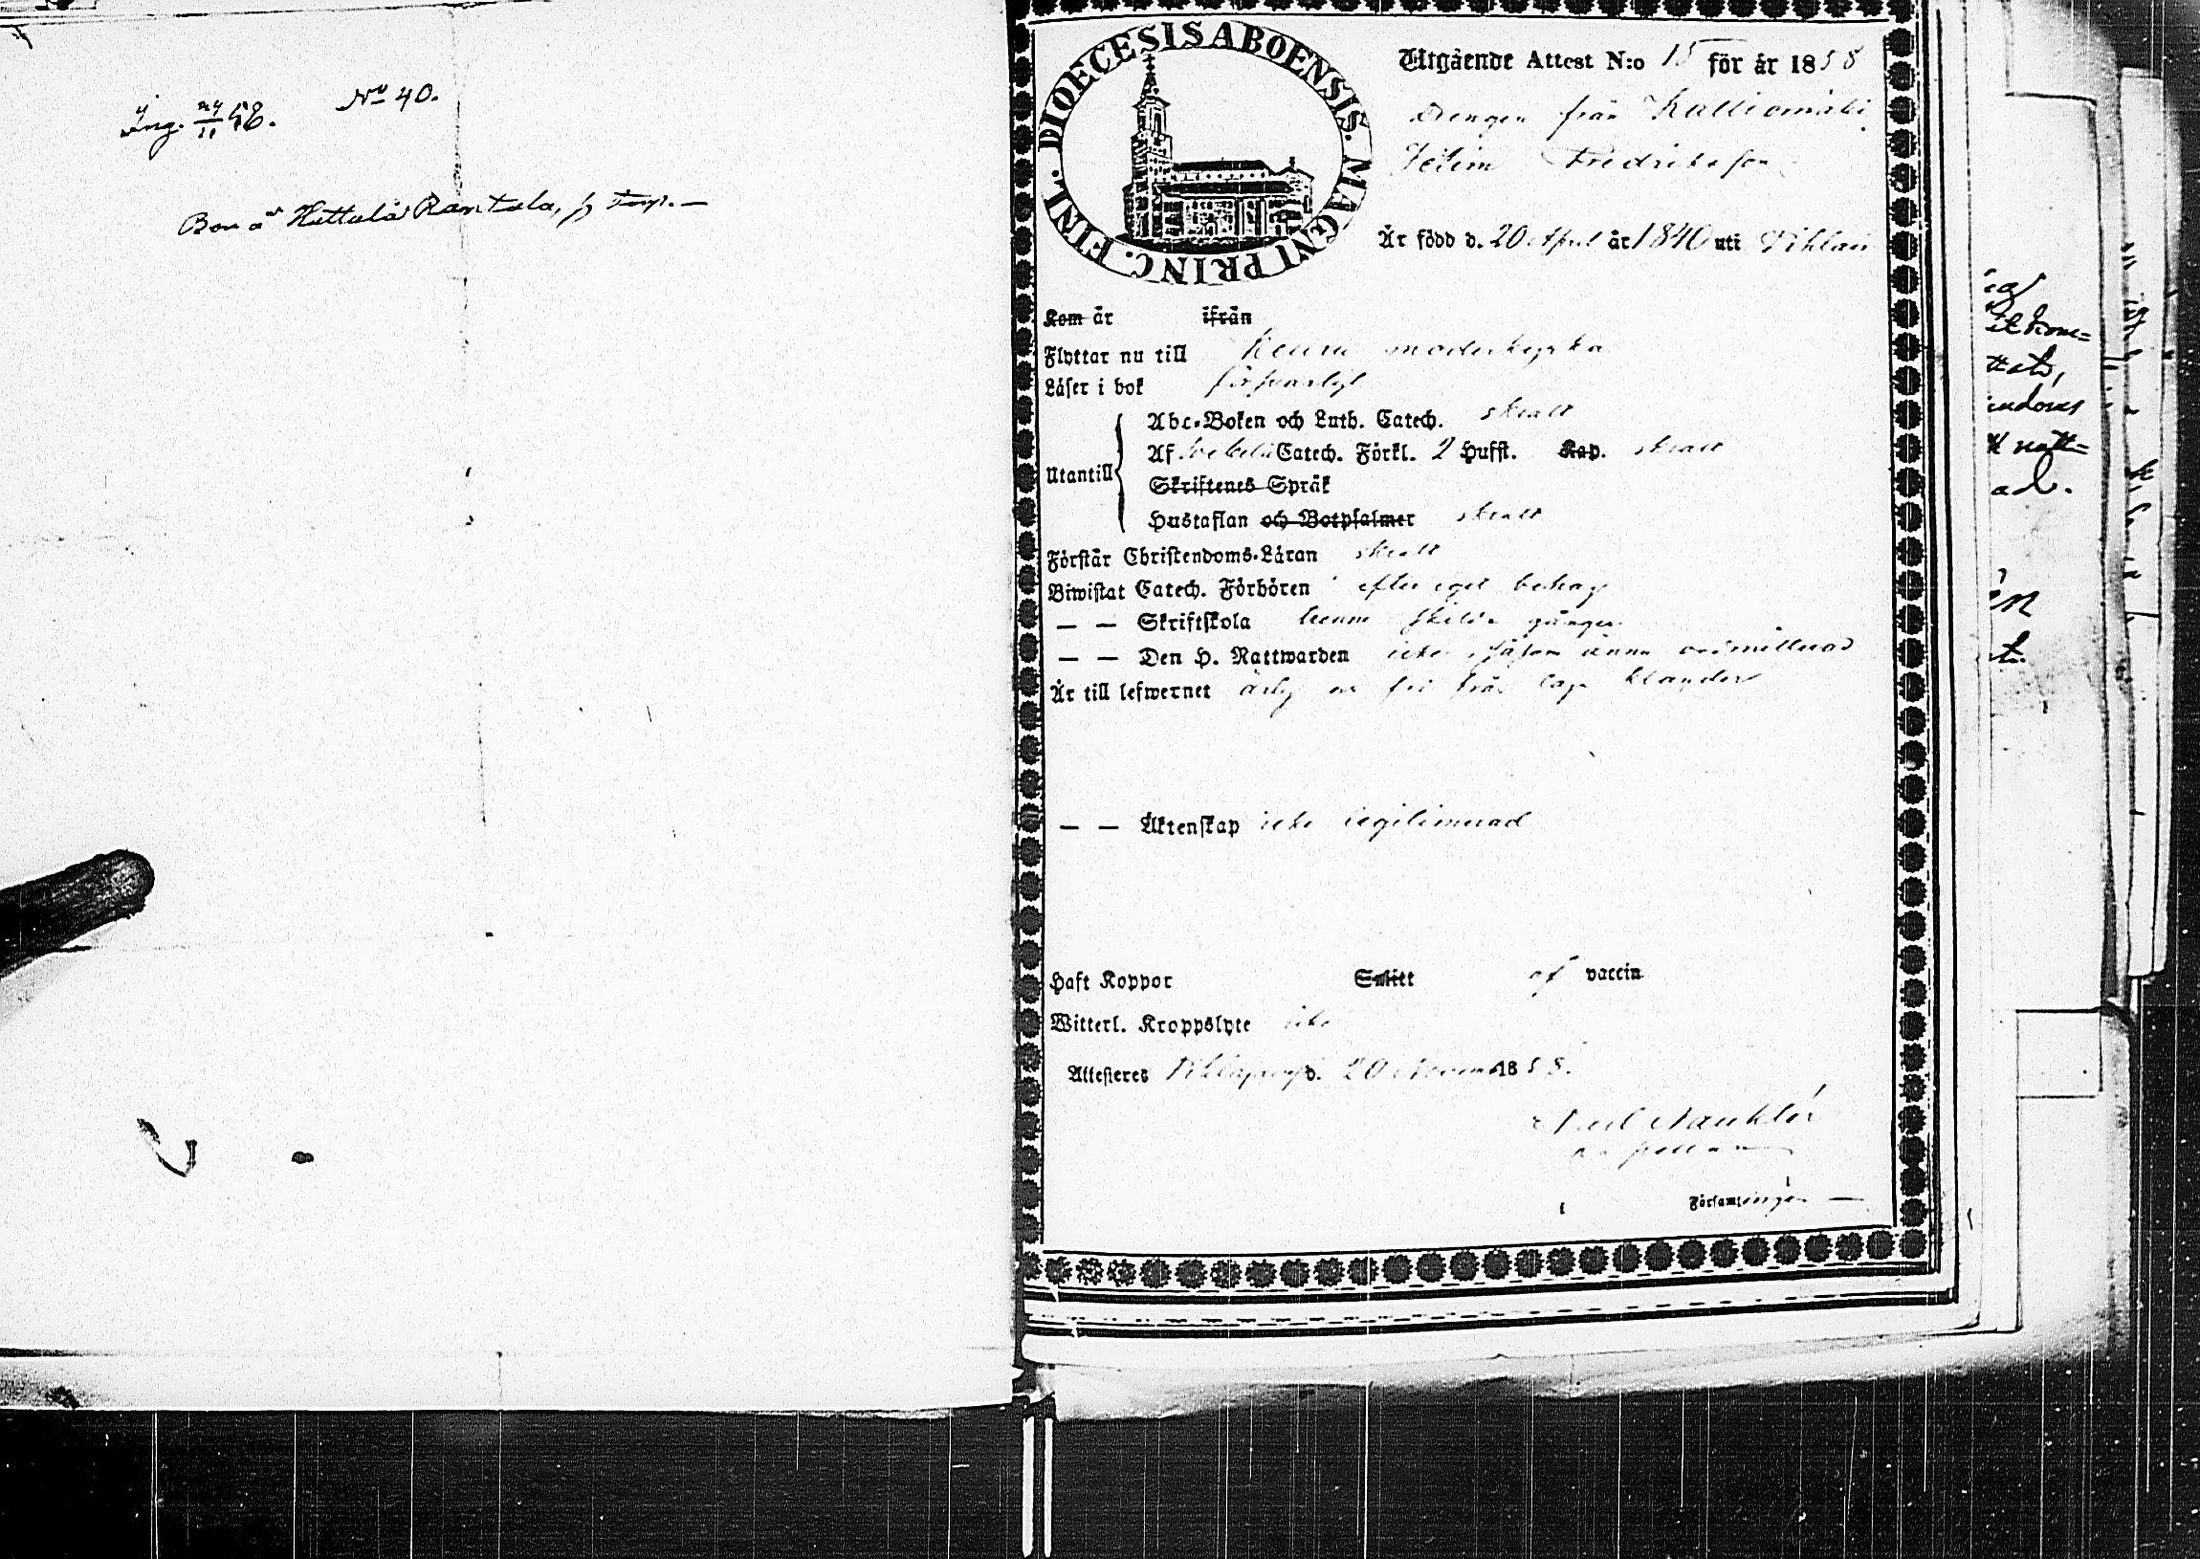 Ing. 24/11 58. No 40.
Bor å Huttula Rantala, p Torp. —
DIOECESIS ABOENSIS. MAGNI PRINC. FINL.
Utgående Attest N:o 15 för år 1858
Drengen från Kalliomäki
Fredriksson
Är född d. 20 April år 1840 uti Pihlaj
Kom år ifrån
Flyttar nu till Keuru moderkyrka
Läser i bok försvarligt
Utantill
Abc-Boken och Luth. Catech. skralt
Af Svebelii Catech. Förkl. 2 Hufst. Kap. skralt
Skriftenes Språk
Hustaflan och Botpsalmer skralt
Förstår Christendoms-Läran skralt
Biwistat Catech. Förhören efter eget behag
— — Skriftskola skilda gånger
— — Den H. Nattwarden icke såsom ännu oadmitterad
Är till lefwernet ärlig och fri från laga klander
— — Äktenskap icke legitimerad
Haft Koppor Smitt af vaccin
Witterl. Kroppslyte icke
Attesteras d. 20 Novemb 1858.
Nauklér
Kapellan
Församlingen —
ig
ndoms
natt=
ad.